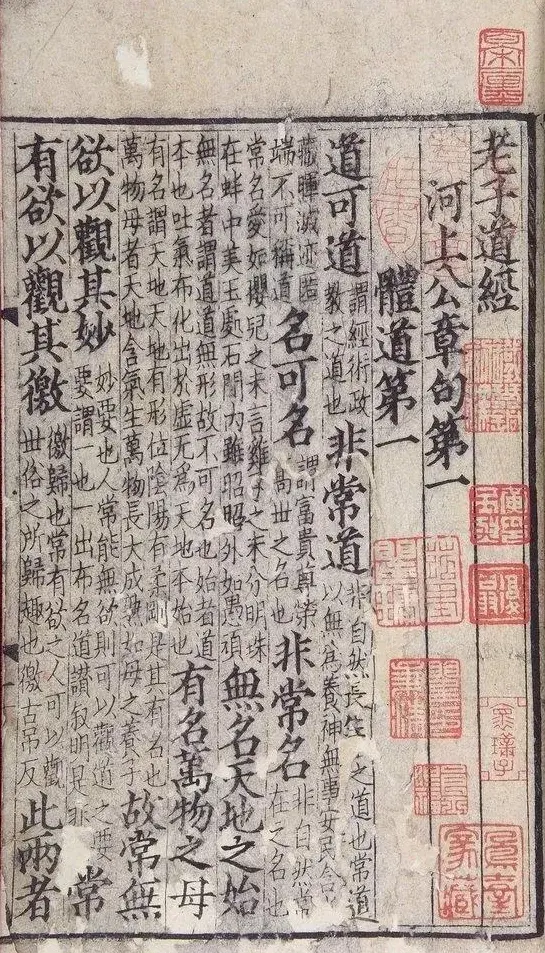 老子道經
河上公章句第一
體道第一
道可道謂經術政教之道也非常道非自然長生之道也常道以無爲養神無事安民含光
藏暉滅迹匿端不可稱道名可名謂富貴尊榮高世之名也非常名非自然常在之名也
常名愛如嬰兒之未言雞子之未分明珠在蚌中美玉處石間內雖昭昭外如愚頑無名天地之始
無名者謂道道無形故不可名也始者道本也吐氣布化出於虛无爲天地本始也有名萬物之母
有名謂天地天地有形位陰陽有柔剛是其有名也萬物母者天地含氣生萬物長大成熟如母之養子故常無
欲以觀其妙妙要也人常能無欲則可以觀道之要要謂一也一出布名道讚叙明是非常
有欲以觀其徼徼歸也常有欲之人可以觀世俗之所歸趣也徼古吊反此兩者